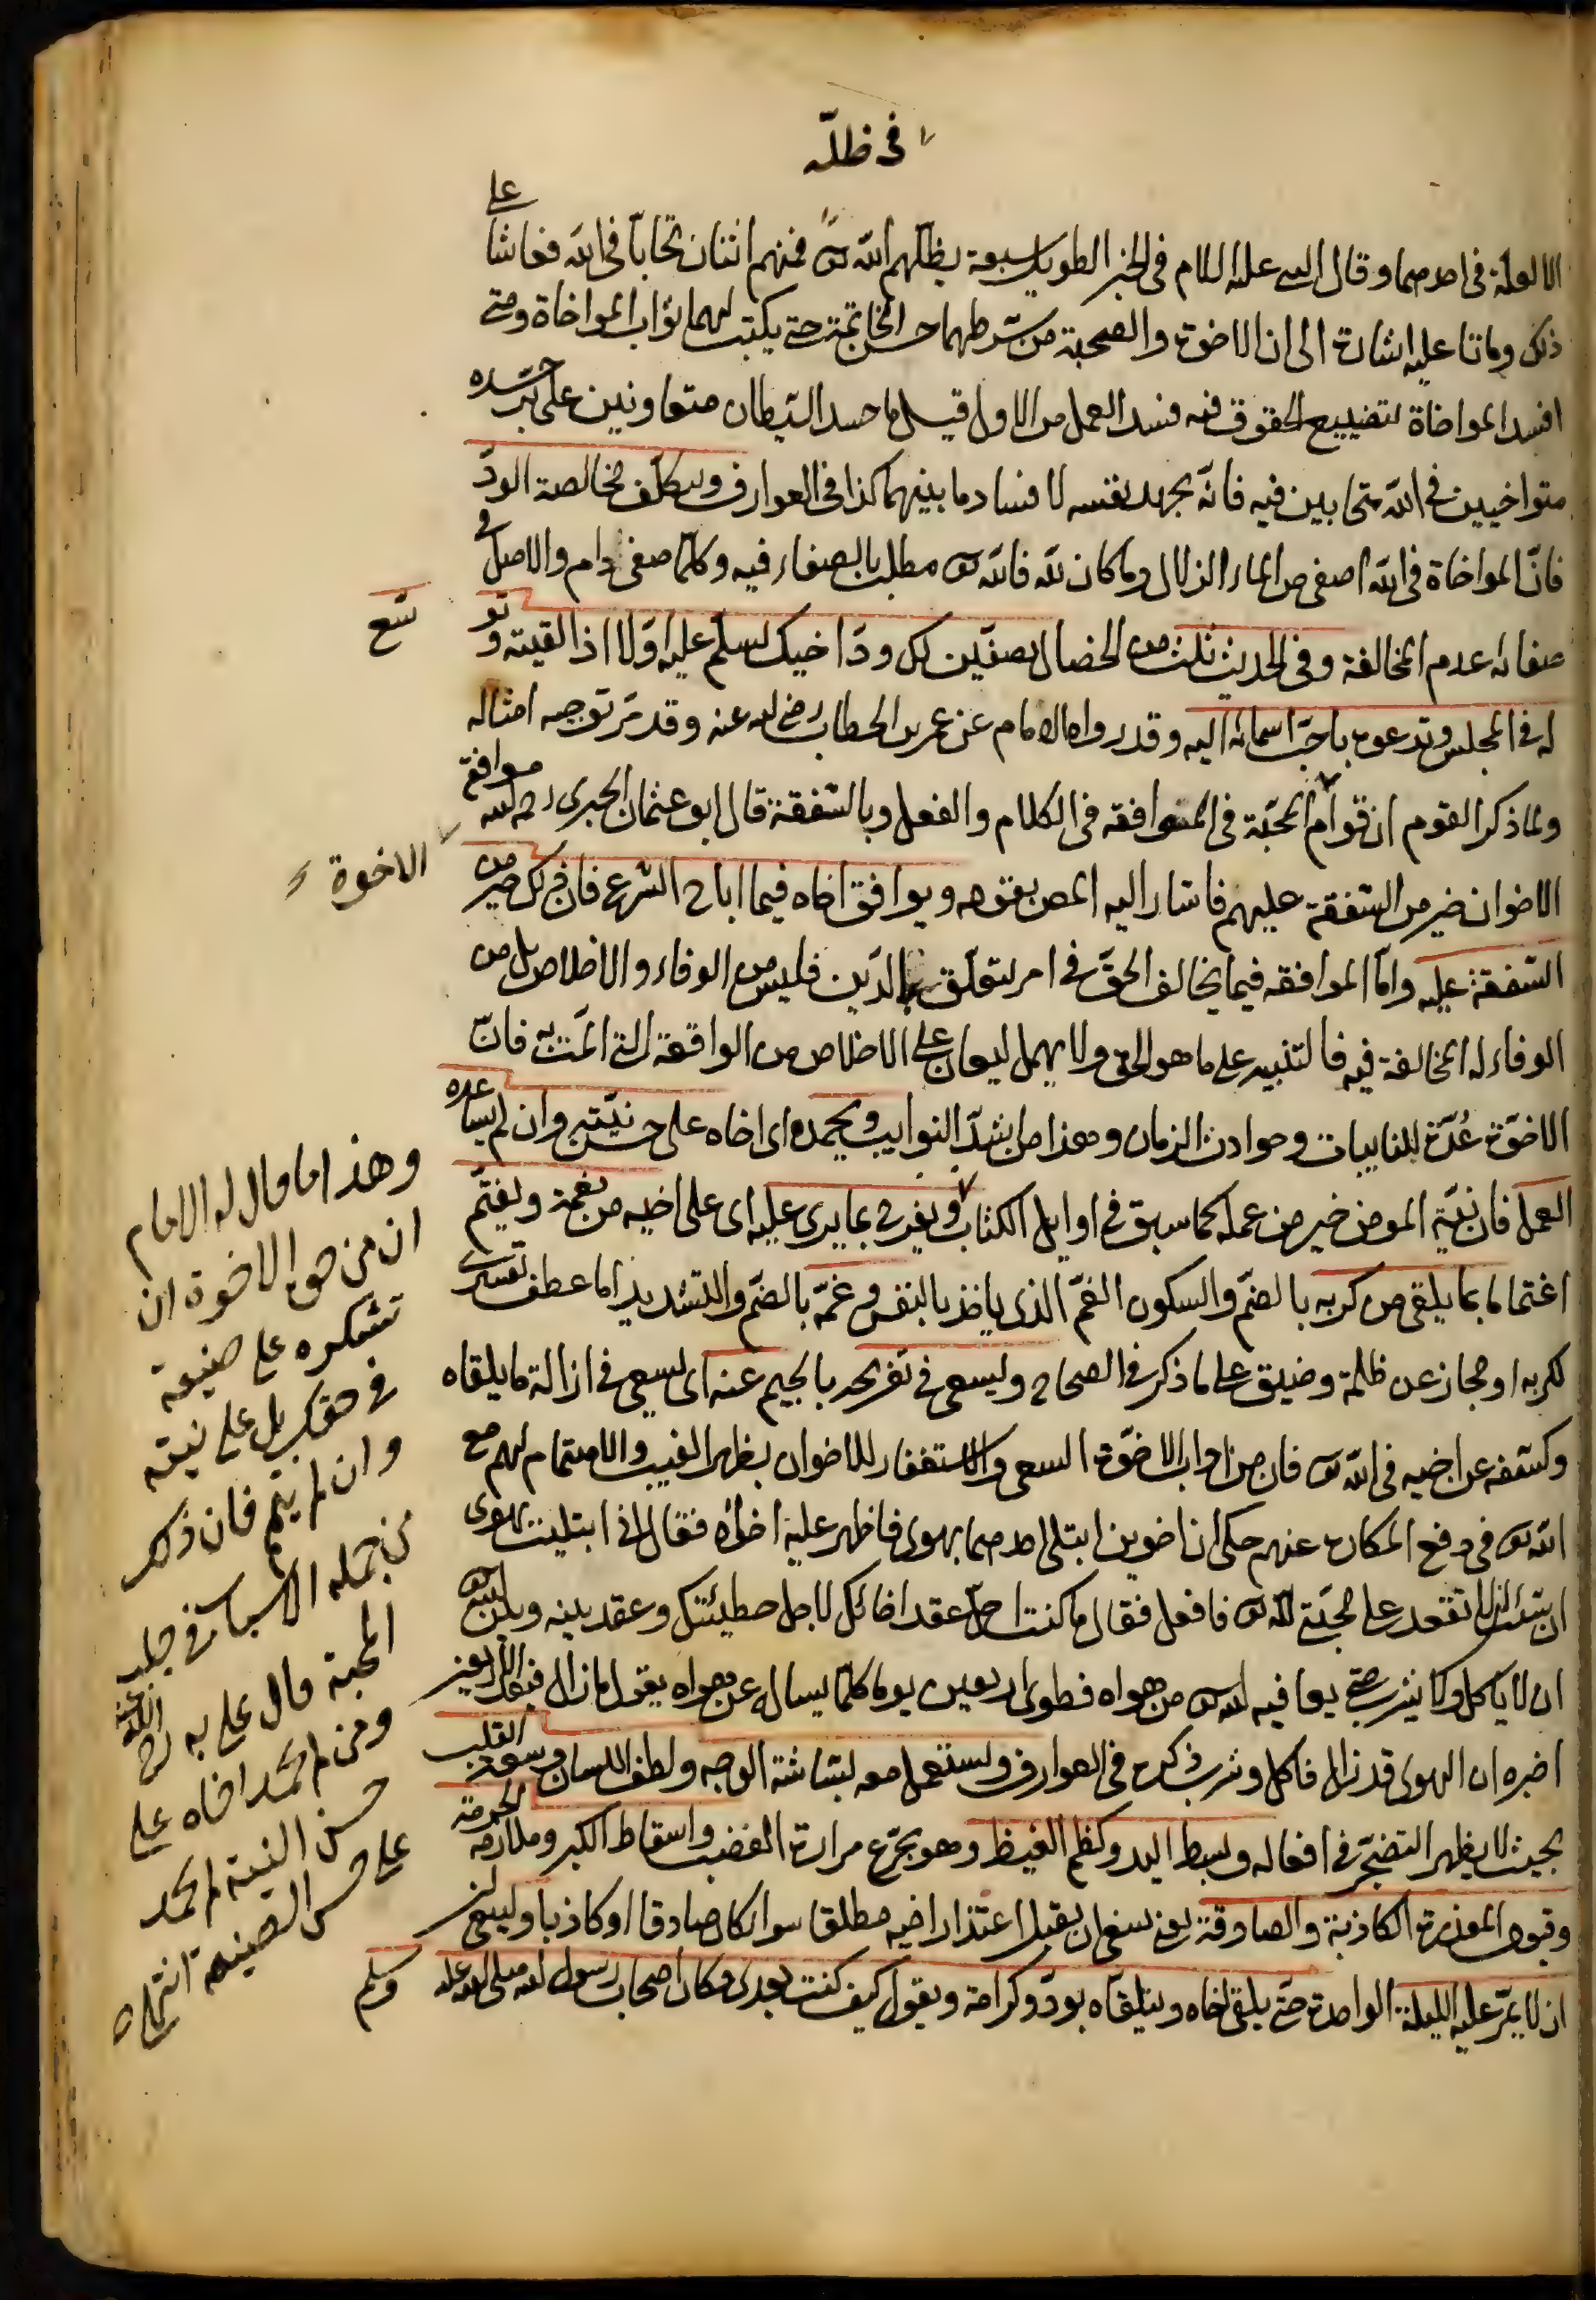 في ظله
الا لعلة في احدهما وقال النبي عليه السلام في الخبر الطويل سبعة يظلهم الله تعالى فمنهم اثنان تحابا في الله فعاشا على
ذلك وماتا عليه اشارة الى ان الاخوة والصحبة من شرطهما حسن الخاتمة حتى يكتب لهما ثواب المواخاة ومتى
افسد المواخاة لتضييع الحقوق فيه فسد العمل من الاول قيل ما حسد الشيطان متعاونين على بر حسده
متواخيين في الله متحابين فيه فانه يجهد نفسه لافساد ما بينهما كذا في العوارف ويتكلف مخالصة الود
فان المواخاة في الله اصفى من الماء الزلال وما كان لله فالله تعالى مطلب بالصفاء فيه وكلما صفى دام والاصل في
صفائه عدم المخالفة وفي الحديث ثلث من الخصال يصفين لك ود اخيك تسلم عليه اولا اذا لقيته وتو
سع
له في المجلس وتدعوه باحب اسمائه اليه وقد رواه الامام عن عمر بن الخطاب رضي الله عنه وقد مر توجيه امثاله
ولما ذكر القوم ان قوام المحبة في الموافقة في الكلام والفعل وبالشفقة قال ابو عثمان الحيري رحمه الله موافقة
الاخوة
الاخوان خير من الشفقة عليهم فاشار اليه المص بقوله ويوافق اخاه فيما اباح الشرع فان ذلك خير من
الشفقة عليه واما الموافقة فيما يخالف الحق في امر يتعلق بالدين فليس من الوفاء والاخلاص بل من
الوفاء له المخالفة فيه فالتنبيه على ما هو الحق ولا يهمل ليعان على الاخلاص من الواقعة التي المت به فان
الاخوة عدة للنايبات وحوادث الزمان وهذا من اشد النوايب ويحمده اى اخاه على حسن نيته وان لم يساعده
العمل فان نية المومن خير من عمله كما سبق في اوايل الكتاب ويفرح بما يرى عليه اى على اخيه من نعمة ويغتم
اغتماما بما يلقى من كربه بالضم والسكون الغم الذي ياخذ بالنفس وغمه بالضم والتشديد اما عطف تفسيرى
لكربه او مجاز عن ظلمة وضيق على ما ذكر في الصحاح ويسعى في تفريجه بالجيم عنه اى يسعى في ازالة ما يلقاه
وكشفه عن اخيه في الله تعالى فان من اداب الاخوة السعى والاستغفار للاخوان بظهر الغيب والاهتمام لهم مع
الله تعالى في دفع المكاره عنهم حكى ان اخوين ابتلى احدهما بهوى فاظهر عليه اخاه فقال اني ابتليت بهوى
ان شئت ان لا تقعد على محبتي لله تعالى فافعل فقال ما كنت احل عقد اخائك لاجل خطيئتك وعقد بينه وبين الله تعالى
ان لا ياكل ولا يشرب حتى يعافيه الله تعالى من هواه فطوى اربعين يوما كلما يساله عن هواه يقول ما زال فبعد الاربعين
اخبره ان الهوى قد زال فاكل وشرب ذكره في العوارف ويستعمل معه بشاشة الوجه ولطف اللسان وسعة القلب
بحيث لا يظهر التضجر في افعاله وبسط اليد وكظم الغيظ وهو تجرع مرارة الغضب واسقاط الكبر وملازمة الحرمة
وقبول المعذرة الكاذبة والصادقة يعني ينبغي ان يقبل اعتذار اخيه مطلقا سواء كان صادقا او كاذبا وينبغي
ان لا يمر عليه الليلة الواحدة حتى يلقى اخاه ويتلقاه بود وكرامة ويقول كيف كنت بعدى وكان اصحاب رسول الله صلى الله عليه
وسلم
وهذا ما قال له الامام
ان من حق الاخوة ان
تشكره على صنيعه
في حقك بل على نيته
وان لم يتم فان ذلك
من جملة الاسباب في جلب
المحبة قال علي به رضي الله عنه
ومن لم يحمد اخاه على
حسن النية لم يحمد
على حسن الصنيعة انتهى